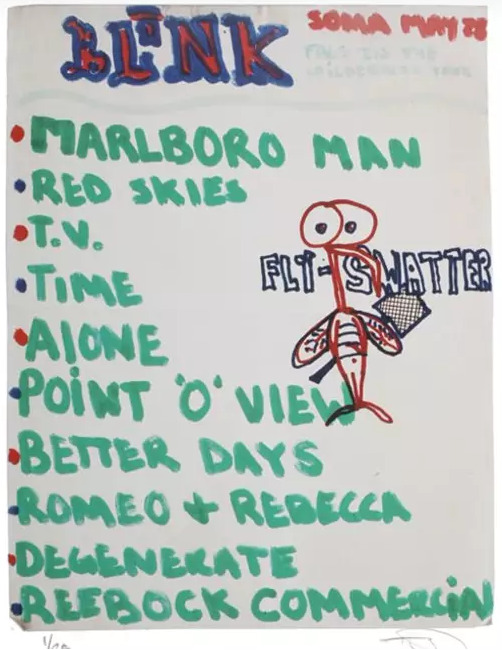 BLINK
SOMA MAY 28
MARLBORO MAN
RED SKIES
T.V.
TIME
FLY-SWATTER
AlONE
POINT 'O' VIEW
BETTER DAYS
ROMEO + REBECCA
DEGENERATE
REEBOCK COMMERCIAl